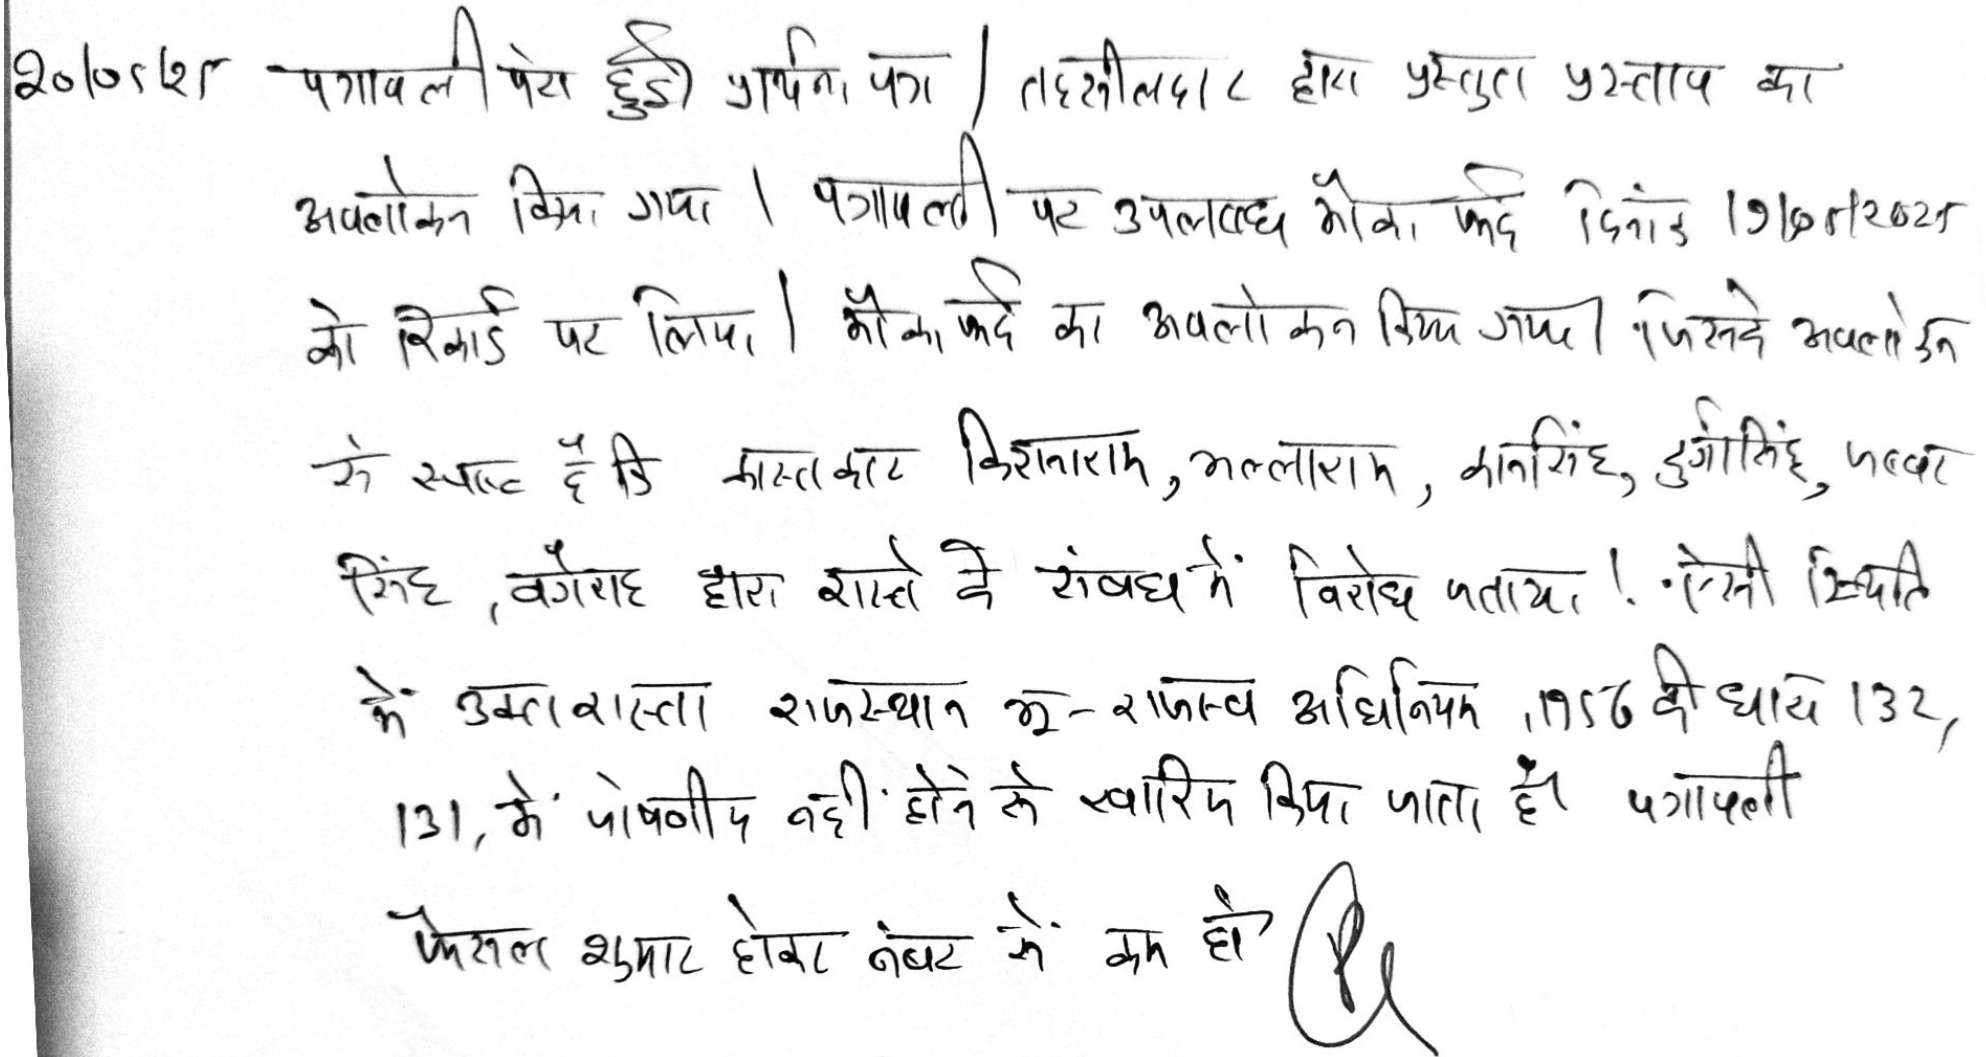 20/05/25 पत्रावली पेश हुई प्रार्थना पत्र / तहसीलदार द्वारा प्रस्तुत प्रस्ताव का
अवलोकन किया गया । पत्रावली पर उपलब्ध मौका फर्द दिनांक 19/05/2025
को रिकार्ड पर लिया । मौका फर्द का अवलोकन किया गया । जिसके अवलोकन
से स्पष्ट है कि कास्तकार किशनाराम, मल्लाराम, कानसिंह, दुर्गासिंह, जब्बर
सिंह, वगैराह द्वारा रास्ते के संबंध में विरोध जताया । ऐसी स्थिति
में उक्त रास्ता राजस्थान भू-राजस्व अधिनियम, 1956 की धारा 132,
131, में पोषणीय नहीं होने से खारिज किया जाता है। पत्रावली
फैसल शुमार होकर नंबर से कम हो